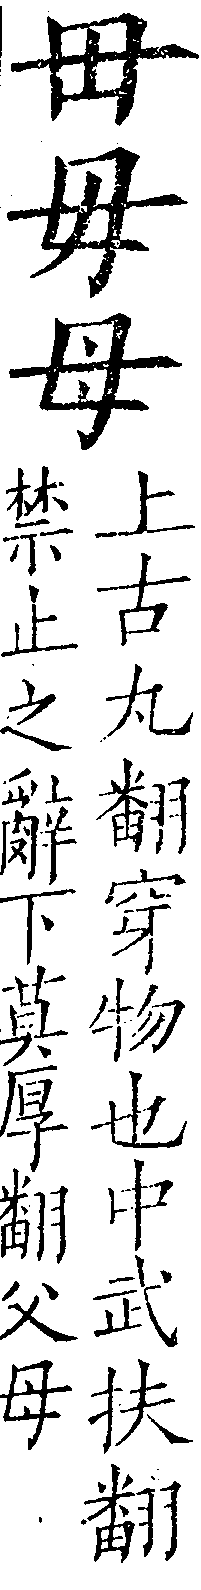 毌毋母
上古丸翻穿物也中武扶翻
禁止之辭下莫厚翻父母